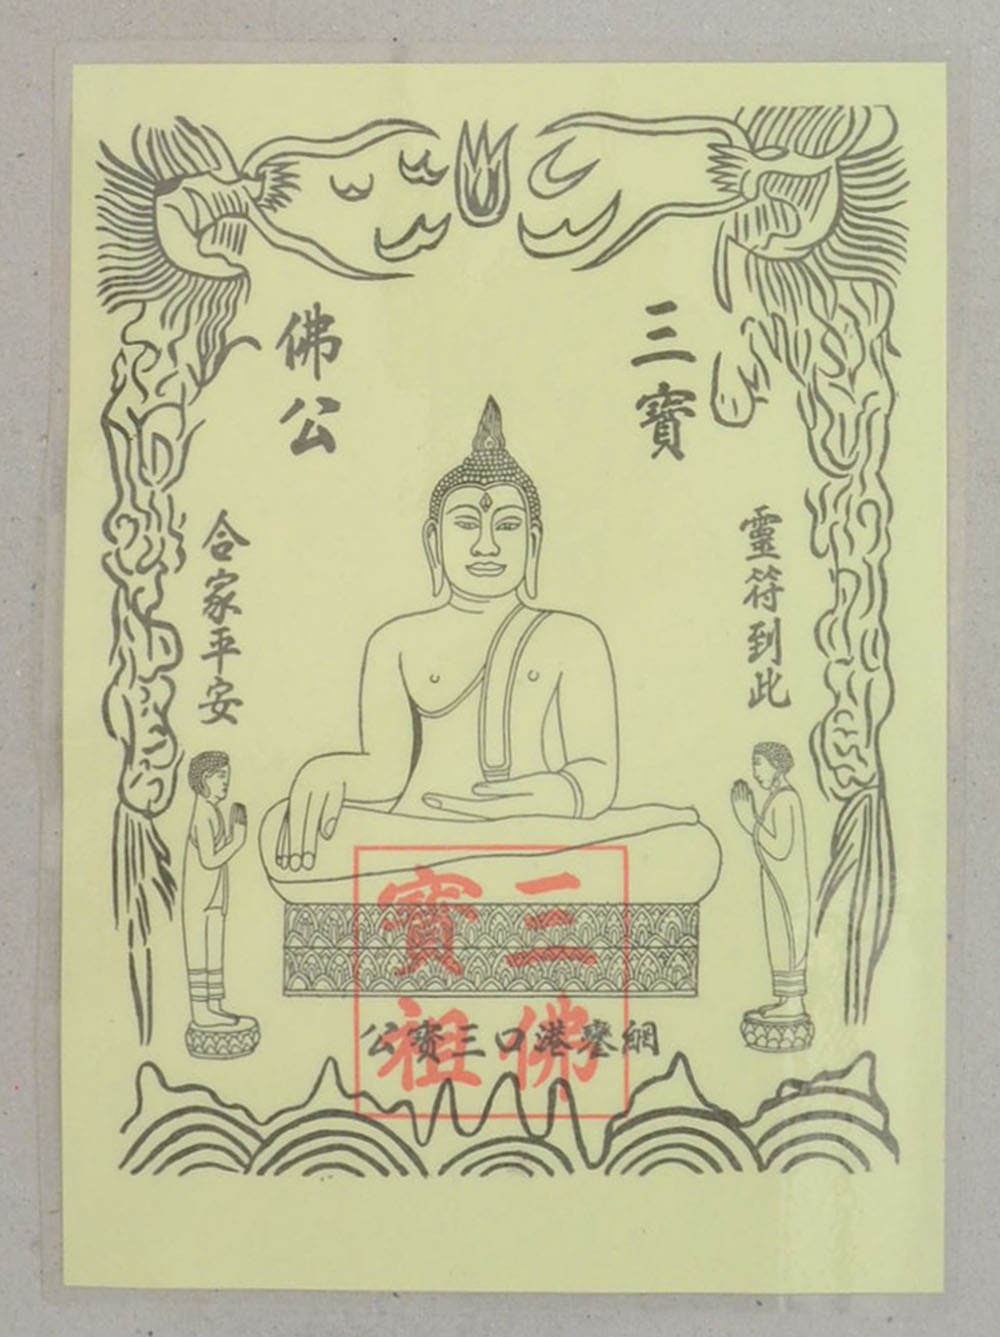 三寶
佛公
靈符到此
合家平安
網鑾港口三寶公
三寶
佛祖